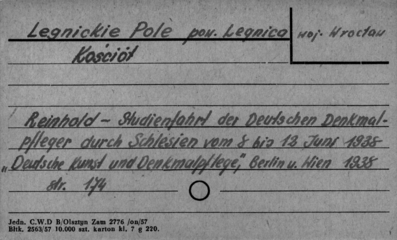 Legnickie Pole pow. Legnica woj. Wrocław
Kościół
Reinhold - Studienfahrt der Deutschen Denkmal-
pfleger durch Schlesien vom 8 bis 13 Juni 1938
"Deutsche Kunst und Denkmalpflege", Berlin u. Wien 1938
str. 174
Jedn. C.W.D B/Olsztyn Zam 2776 /on/57
Bltk. 2563/57 10.000 szt. karton kl. 7 g 220.